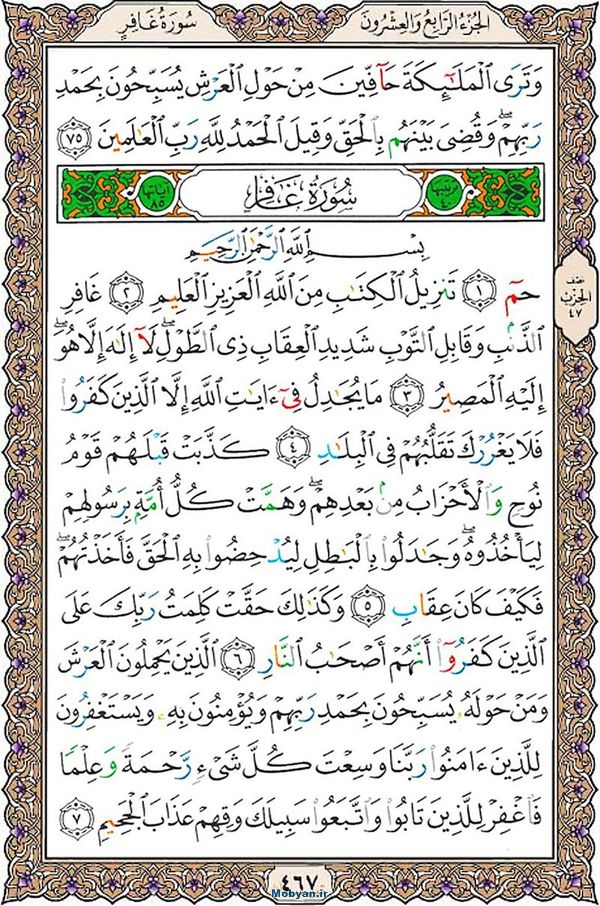 الجزء الرابع والعشرون
سورة غافر
وَتَرَى ٱلْمَلَـٰٓئِكَةَ حَآفِّينَ مِنْ حَوْلِ ٱلْعَرْشِ يُسَبِّحُونَ بِحَمْدِ
رَبِّهِمْ ۖ وَقُضِىَ بَيْنَهُم بِٱلْحَقِّ وَقِيلَ ٱلْحَمْدُ لِلَّهِ رَبِّ ٱلْعَـٰلَمِينَ ٧٥
ترتيبها ٤٠ سورة غافر آياتها ٨٥
بِسْمِ ٱللَّهِ ٱلرَّحْمَـٰنِ ٱلرَّحِيمِ
حمٓ ١ تَنزِيلُ ٱلْكِتَـٰبِ مِنَ ٱللَّهِ ٱلْعَزِيزِ ٱلْعَلِيمِ ٢ غَافِرِ
ٱلذَّنۢبِ وَقَابِلِ ٱلتَّوْبِ شَدِيدِ ٱلْعِقَابِ ذِى ٱلطَّوْلِ ۖ لَآ إِلَـٰهَ إِلَّا هُوَ ۖ
إِلَيْهِ ٱلْمَصِيرُ ٣ مَا يُجَـٰدِلُ فِىٓ ءَايَـٰتِ ٱللَّهِ إِلَّا ٱلَّذِينَ كَفَرُوا۟
فَلَا يَغْرُرْكَ تَقَلُّبُهُمْ فِى ٱلْبِلَـٰدِ ٤ كَذَّبَتْ قَبْلَهُمْ قَوْمُ
نُوحٍ وَٱلْأَحْزَابُ مِنۢ بَعْدِهِمْ ۖ وَهَمَّتْ كُلُّ أُمَّةٍۭ بِرَسُولِهِمْ
لِيَأْخُذُوهُ ۖ وَجَـٰدَلُوا۟ بِٱلْبَـٰطِلِ لِيُدْحِضُوا۟ بِهِ ٱلْحَقَّ فَأَخَذْتُهُمْ ۖ
فَكَيْفَ كَانَ عِقَابِ ٥ وَكَذَٰلِكَ حَقَّتْ كَلِمَتُ رَبِّكَ عَلَى
ٱلَّذِينَ كَفَرُوٓا۟ أَنَّهُمْ أَصْحَـٰبُ ٱلنَّارِ ٦ ٱلَّذِينَ يَحْمِلُونَ ٱلْعَرْشَ
وَمَنْ حَوْلَهُۥ يُسَبِّحُونَ بِحَمْدِ رَبِّهِمْ وَيُؤْمِنُونَ بِهِۦ وَيَسْتَغْفِرُونَ
لِلَّذِينَ ءَامَنُوا۟ رَبَّنَا وَسِعْتَ كُلَّ شَىْءٍ رَّحْمَةً وَعِلْمًا
فَٱغْفِرْ لِلَّذِينَ تَابُوا۟ وَٱتَّبَعُوا۟ سَبِيلَكَ وَقِهِمْ عَذَابَ ٱلْجَحِيمِ ٧
نصف
الحزب
٤٧
٤٦٧
Mobyan.ir